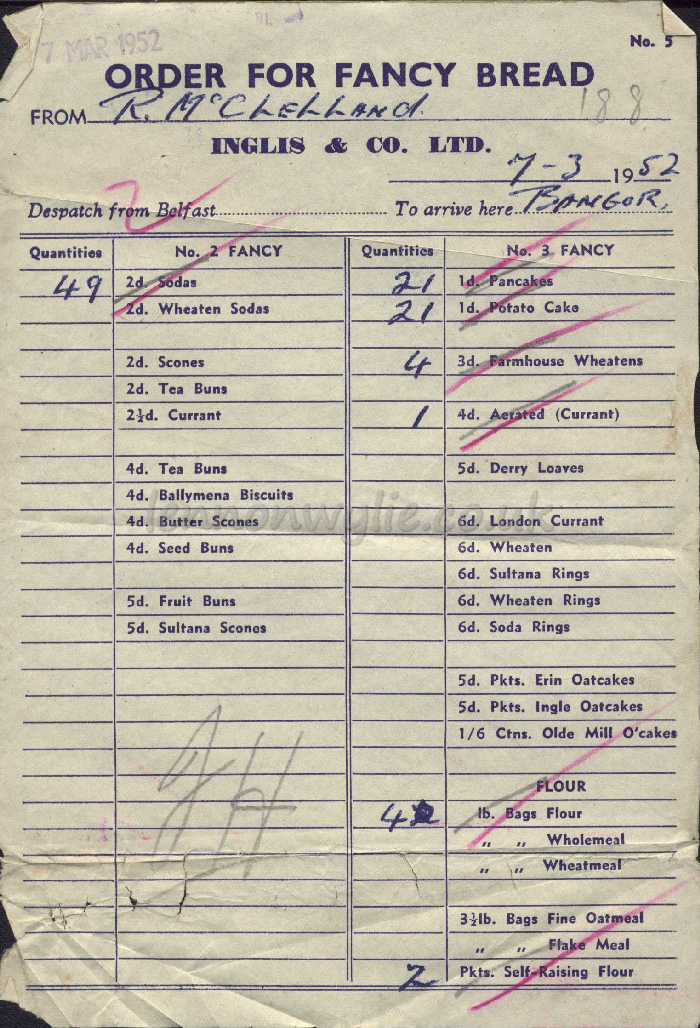 7 MAR 1952
No. 5
ORDER FOR FANCY BREAD
FROM R. McCLELLAND. 188
INGLIS & CO. LTD.
7-3 1952
Despatch from Belfast To arrive here BANGOR.
Quantities No. 2 FANCY Quantities No. 3 FANCY
49 2d. Sodas 21 1d. Pancakes
2d. Wheaten Sodas 21 1d. Potato Cake
2d. Scones 4 3d. Farmhouse Wheatens
2d. Tea Buns
2½d. Currant 1 4d. Aerated (Currant)
4d. Tea Buns 5d. Derry Loaves
4d. Ballymena Biscuits
lennonwylie.co.uk
4d. Butter Scones 6d. London Currant
4d. Seed Buns 6d. Wheaten
6d. Sultana Rings
5d. Fruit Buns 6d. Wheaten Rings
5d. Sultana Scones 6d. Soda Rings
5d. Pkts. Erin Oatcakes
5d. Pkts. Ingle Oatcakes
1/6 Ctns. Olde Mill O'cakes
FLOUR
4 lb. Bags Flour
„ „ Wholemeal
„ „ Wheatmeal
3½lb. Bags Fine Oatmeal
„ „ Flake Meal
2 Pkts. Self-Raising Flour